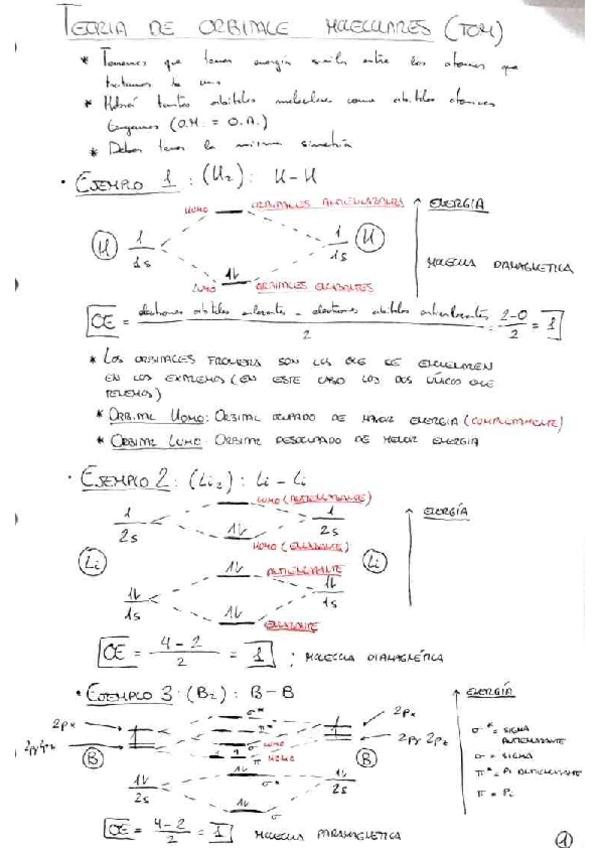 TEORIA DE ORBITALE MOLECULARES (TOM)
* Tenemos que tener energía similar entre los átomos que
tratamos de unir
* Habrá tantos orbitales moleculares como orbitales atómicos
tengamos (O.M. = O.A.)
* Deben tener la misma simetría
· EJEMPLO 1 : (H2) : H-H
HOMO ORBITALES ANTIENLAZANTES ENERGIA
H 1 1s 1 1s H
MOLECULA DIAMAGNETICA
LUMO ORBITALES ENLAZANTES
OE = electrones orbitales enlazantes - electrones orbitales antienlazantes / 2 = 2-0 / 2 = 1
* LOS ORBITALES FRONTERA SON LOS QUE SE ENCUENTREN
EN LOS EXTREMOS (EN ESTE CASO LOS DOS ÚNICOS QUE
TENEMOS)
* ORBITAL HOMO: ORBITAL OCUPADO DE MAYOR ENERGIA (COMPLETAMENTE)
* ORBITAL LUMO: ORBITAL DESOCUPADO DE MENOR ENERGIA
· EJEMPLO 2 : (Li2) : Li - Li
LUMO (ANTIENLAZANTE) ENERGÍA
1 2s 1 2s
HOMO (ENLAZANTE)
Li ANTIENLAZANTE Li
1s 1s
ENLAZANTE
OE = 4-2 / 2 = 1 ; MOLECULA DIAMAGNÉTICA
· EJEMPLO 3 : (B2) : B - B ENERGÍA
2px σ* 2px
π*
2py 2pz σ LUMO 2py 2pz
B π HOMO B
2s σ* 2s
σ
σ* = SIGMA
ANTIENLAZANTE
σ = SIGMA
π* = PI ANTIENLAZANTE
π = Pi
OE = 4-2 / 2 = 1 MOLECULA PARAMAGNETICA
1